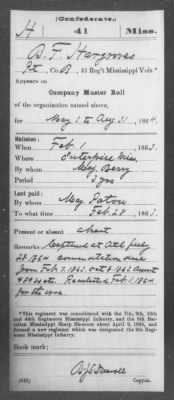 (Confederate.)
H 41 Miss.
B. F. Hargroves
Pvt., Co. B, 41 Reg't Mississippi Vols.*
Appears on
Company Muster Roll
of the organization named above,
for May 1 to Aug 31, 1864.
Enlisted:
When Feb. 1, 1863.
Where Enterprise Miss.
By whom Maj. Berry
Period 3 yrs
Last paid:
By whom Maj. Paton
To what time Feb. 28, 1863.
Present or absent Absent
Remarks: Captured at Atl July
28 1864 commutation due
from Feb. 7. 1863
Reenlisted Feb. 1. 1864
for the war.
*This regiment was consolidated with the 7th, 9th, 10th
and 44th Regiments Mississippi Infantry, and the 9th Bat-
talion Mississippi Sharp Shooters about April 9, 1865, and
formed a new regiment which was designated the 9th Regi-
ment Mississippi Infantry.
Book mark:
(642)
Copyist.